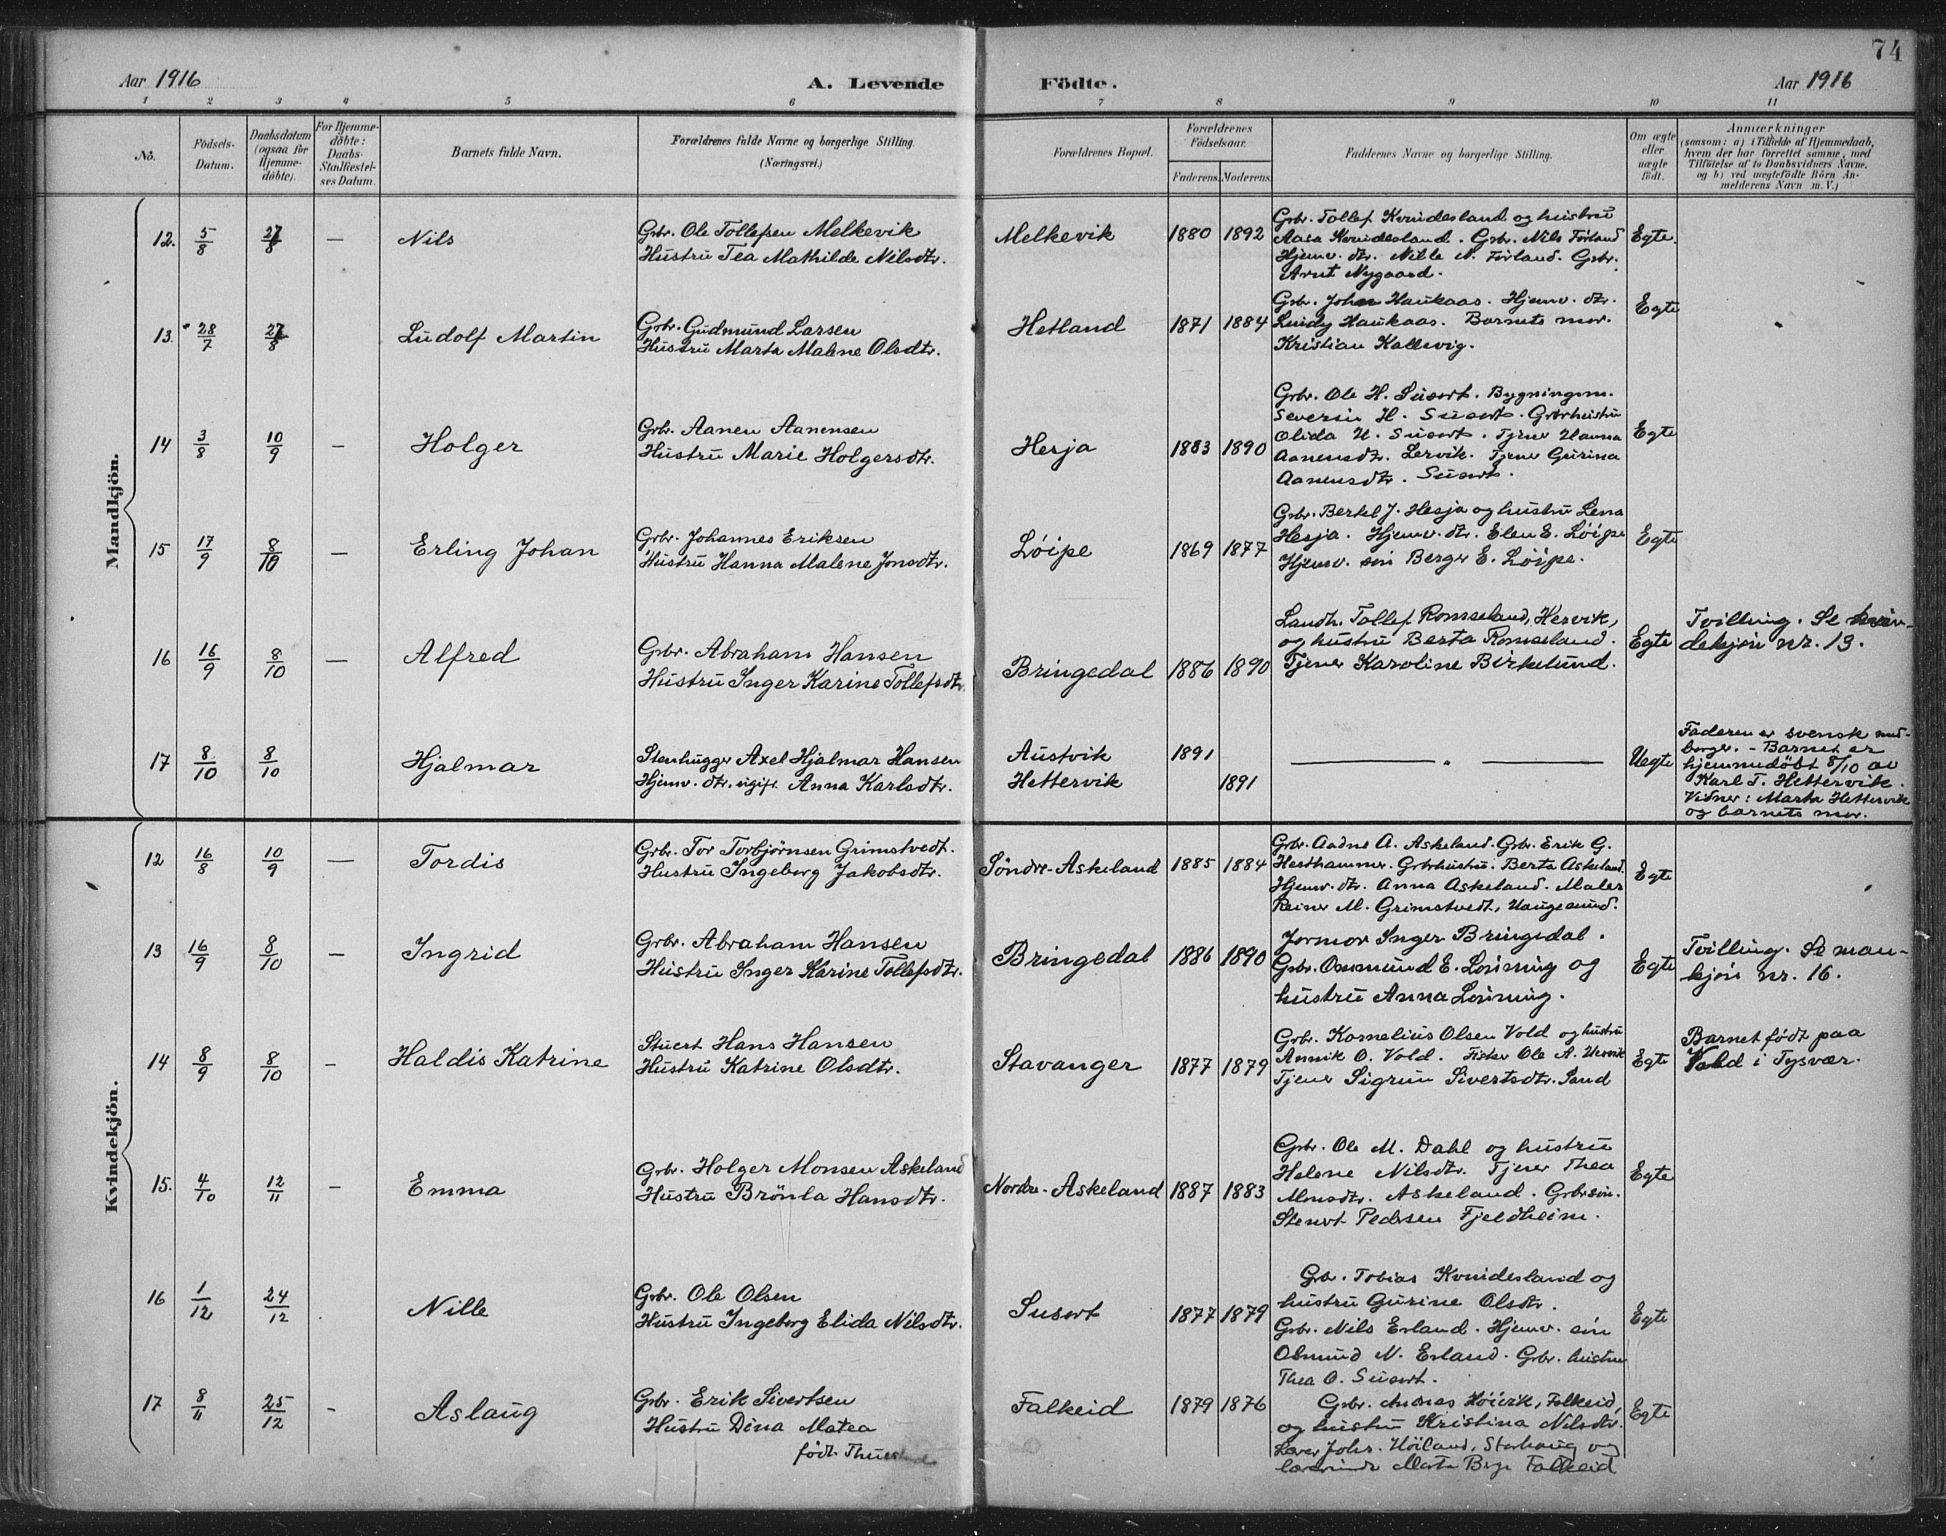 74
Aar 1916 A. Levende Födte. Aar 1916
1 2 3 4 5 6 7 8 9 10 11
No.
Födsels-
Datum.
Daabsdatum
(ogsaa for
Hjemme-
döbte).
For Hjemme-
döbte:
Daabs-
Stadfæstel-
ses Datum.
Barnets fulde Navn.
Forældrenes fulde Navne og borgerlige Stilling.
(Næringsvei.)
Forældrenes Bopæl.
Forældrenes
Födselsaar.
Faderens. Moderens.
Faddernes Navne og borgerlige Stilling.
Om ægte
eller
uægte
födt.
Anmærkninger
(saasom: a) i Tilfælde af Hjemmedaab,
hvem der har forrettet samme, med
Tilföielse af to Daabsvidners Navne.
og b) ved uægtefödte Börn An-
melderens Navn m. V.)
Mandkjön.
12. 5/8 27/8 — Nils
Grbr. Ole Tollefsen Melkevik
Hustru Tea Mathilde Nilsdtr.
Melkevik 1880 1892
Grbr. Tollef Kvindesland og hustru
Aasa Kvindesland. Grbr. Nils Førland
Hjemv. dtr. Nille N. Førland. Grbr.
Arnt Nygaard.
Egte.
13. 28/7 27/8 Ludolf Martin
Grbr. Gudmund Larsen
Hustru Marta Malene Olsdtr.
Hetland 1871 1884
Grbr. John Haukaas. Hjemv. dtr.
Lindy Haukaas. Barnets mor.
Kristian Kallevig.
Egte
14 3/8 10/9 — Holger
Grbr. Aanen Aanensen
Hustru Marie Holgersdtr.
Hesja 1883 1890
Grbr. Ole H. Susort. Bygningsm.
Severin H. Susort. Grbrhustru
Olida H. Susort. Tjener Hanna
Aanensdtr. Lervik. Tjener Gurina
Aanensdtr. Susort.
Egte
15 17/9 8/10 — Erling Johan
Grbr. Johannes Eriksen
Hustru Hanna Malene Jonsdtr.
Løipe 1869 1877
Grbr. Bertel J. Hesja og hustru Lena
Hesja. Hjemv. dtr. Elen E. Løipe
Hjemv. søn Berger E. Løipe.
Egte
16 16/9 8/10 — Alfred
Grbr. Abraham Hansen
Hustru Inger Karine Tollefsdtr.
Bringedal 1886 1890
Landh. Tollef Romseland, Hervik,
og hustru Berta Romseland.
Tjener Karoline Birkelund.
Egte
Tvilling. Se kvin-
dekjøn nr. 13.
17 8/10 8/10 Hjalmar
Stenhugger Axel Hjalmar Hansen
Hjemv. dtr. ugift Anna Karlsdtr.
Austvik 1891
Hettervik 1891
— „ —
Uegte
Faderen er svensk und-
borger. - Barnet er
hjemmedøbt 8/10 av
Karl T. Hettervik.
Vidner: Marta Hettervik
og barnets mor.
Kvindekjön.
12 16/8 10/9 — Tordis
Grbr. Tor Torbjørnsen Grimstvedt.
Hustru Ingeborg Jakobsdtr.
Søndre-Askeland 1885 1884
Grbr. Aadne A. Askeland. Grbr. Erik G.
Hesthammer. Grbrhustru. Berta Askeland.
Hjemv. dtr. Anna Askeland. Maler
Reiner M. Grimstvedt, Haugesund.
Egte
13 16/9 8/10 — Ingrid
Grbr. Abraham Hansen
Hustru Inger Karine Tollefsdtr.
Bringedal 1886 1890
Jormor Inger Bringedal.
Grbr. Osmund E. Lønning og
hustru Anna Lønning.
Egte
Tvilling. Se man-
kjøn nr. 16.
14 8/9 8/10 - Haldis Katrine
Stuert Hans Hansen
Hustru Katrine Olsdtr.
Stavanger 1877 1879
Grbr. Kornelius Olsen Vold og hustru
Annik O. Vold. Fisker Ole A. Hervik
Tjener Sigrun Sivertsdtr. Sand
Egte
Barnet født paa
Vold i Tysvær.
15. 4/10 12/11 - Emma
Grbr. Holger Monsen Askeland
Hustru Brønla Hansdtr.
Nordre-Askeland 1887 1883
Grbr. Ole M. Dahl og hustru
Helene Nilsdtr. Tjener Thea
Monsdtr. Askeland. Grbrsøn.
Stenvt Pedersen Fjeldheim.
Egte
16 1/12 24/12 Nille
Grbr. Ole Olsen
Hustru Ingeborg Elida Nilsdtr.
Susort 1877 1879
Grbr. Tobias Kvindesland og
hustru Gurine Olsdtr.
Grbr. Nils Erland. Hjemv. søn
Osmund N. Erland. Grbr. hustru
Thea O. Susort.
Egte
17 8/11 25/12 - Aslaug
Grbr. Erik Sivertsen
Hustru Dina Matea
født
Falkeid 1879 1876
Grbr. Andreas Høivik, Falkeid,
og hustru Kristina Nilsdtr.
Lærer Johs. Høiland, Storhaug og
lærerinde Marta Bryn Falkeid
Egte